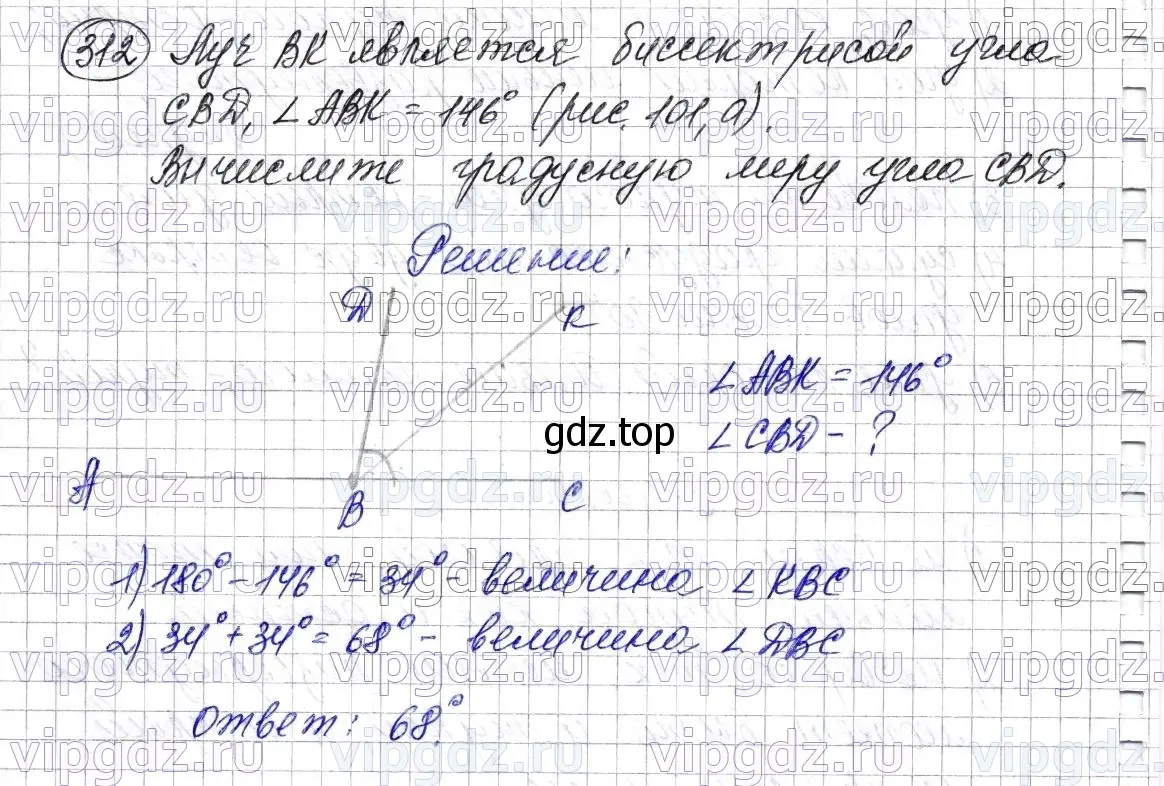 312 Луч BK является биссектрисой угла
CBD, ∠ABK = 146° (рис. 101, а).
Вычислите градусную меру угла CBD.
Решение:
D
K
∠ABK = 146°
∠CBD - ?
gdz.top
A
B
C
1) 180° - 146° = 34° - величина ∠KBC
2) 34° + 34° = 68° - величина ∠DBC
Ответ: 68°.
vipgdz